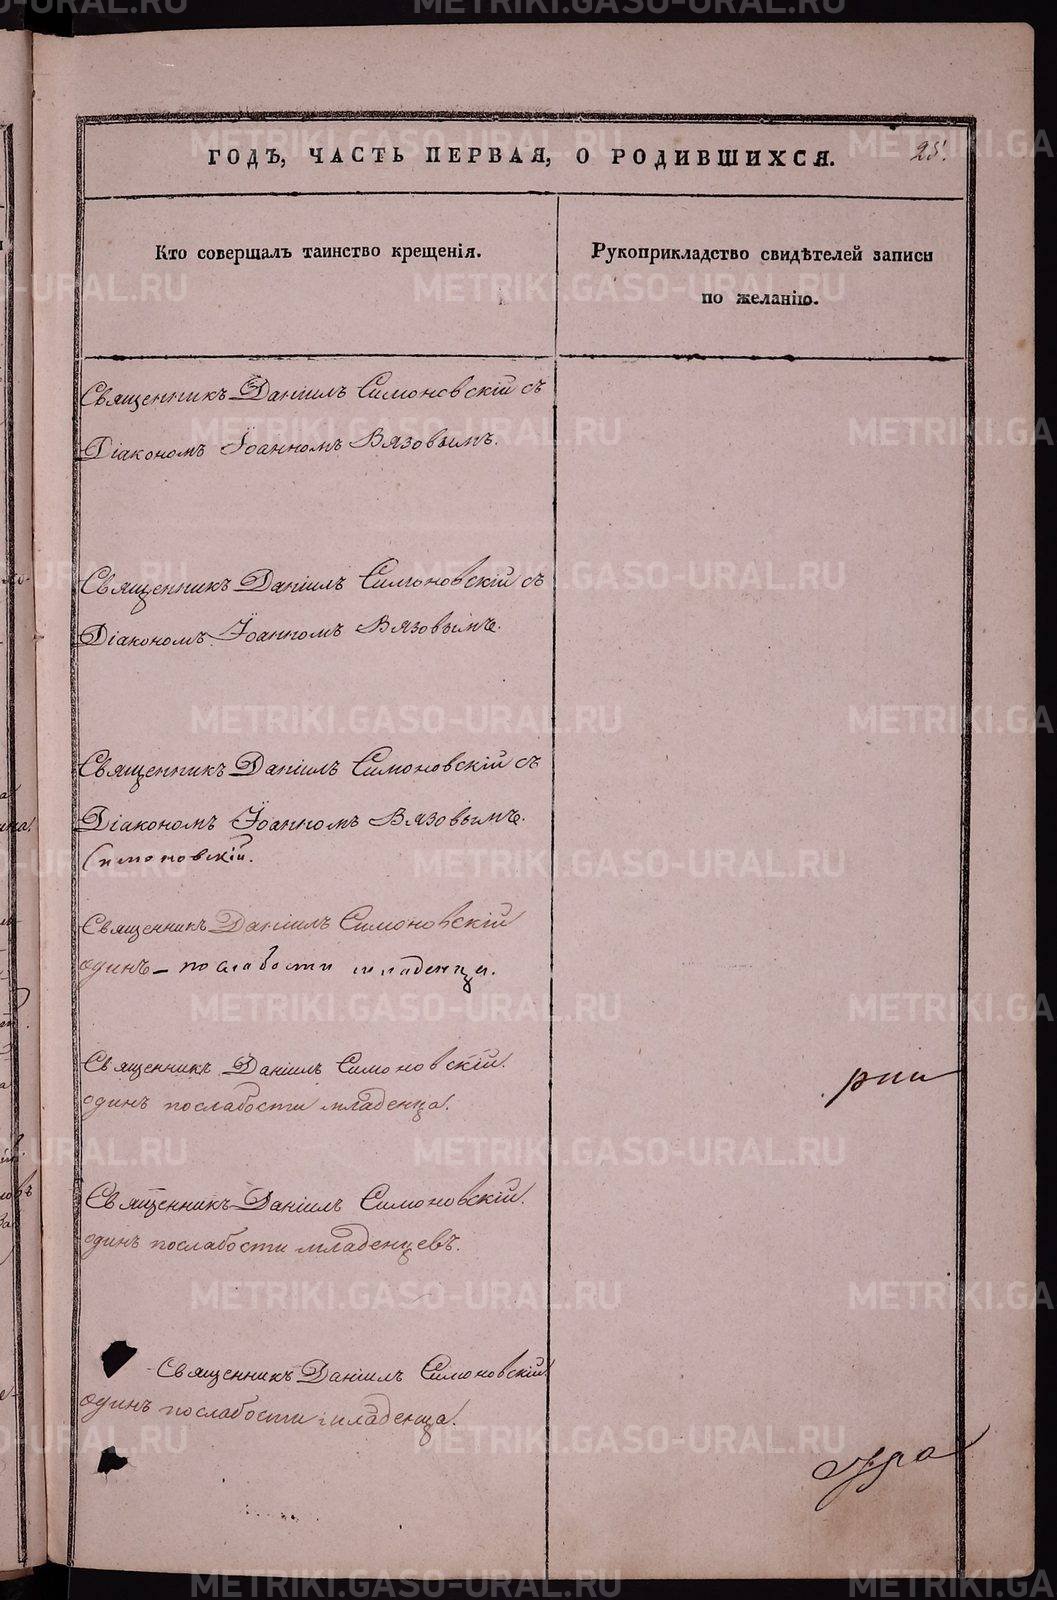 ГОДЪ, ЧАСТЬ ПЕРВАЯ, О РОДИВШИХСЯ.
25.
Кто совершалъ таинство крещенія.
Рукоприкладство свидѣтелей записи
по желанію.
Священникъ Даніилъ Симоновскій съ
Діакономъ Іоанномъ Вязовымъ.
Священникъ Даніилъ Симоновскій съ
Діакономъ Іоанномъ Вязовымъ.
Священникъ Даніилъ Симоновскій съ
Діакономъ Іоанномъ Вязовымъ.
Симоновскій.
Священникъ Даніилъ Симоновскій
одинъ – послабости младенца.
Священникъ Даніилъ Симоновскій.
одинъ послабости младенца.
Священникъ Даніилъ Симоновскій.
одинъ послабости младенцевъ.
Священникъ Даніилъ Симоновскій
одинъ послабости младенца.
METRIKI.GASO-URAL.RU